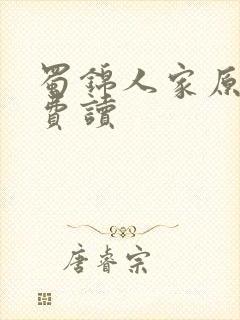 蜀錦人家原
費讀
唐睿宗